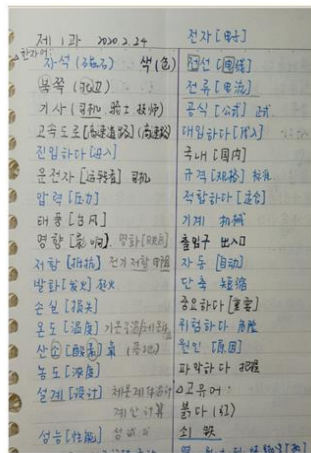 제 1과 2020.2.24
한자어:
자석 (磁石) 색(色)
북쪽 (北边)
기사 [司机 骑士 技师]
고속도로 [高速道路] (高速路)
진입하다 [进入]
운전자 [运转者] 司机
압력 [压力]
태풍 [台风]
영향 [影响]. 영화 [映画]
저항 [抵抗] 전기저항 电阻
발화 [发火]
손실 [损失]
온도 [温度]
산소 [酸素] 氧
농도 [浓度]
설계 [设计]
계산 计算
성능 [性能]
전자 [电子]
전선 [电线]
전류 [电流]
공식 [公式] 正式
대입하다 [代入]
국내 [国内]
규격 [规格] 标准
적합하다 [适合]
기계 机械
출입구 出入口
자동 [自动]
단축 短缩
중요하다 [重要]
위험하다 危险
원인 [原因]
파악하다 把握
고유어:
붉다 (红)
쇠 铁